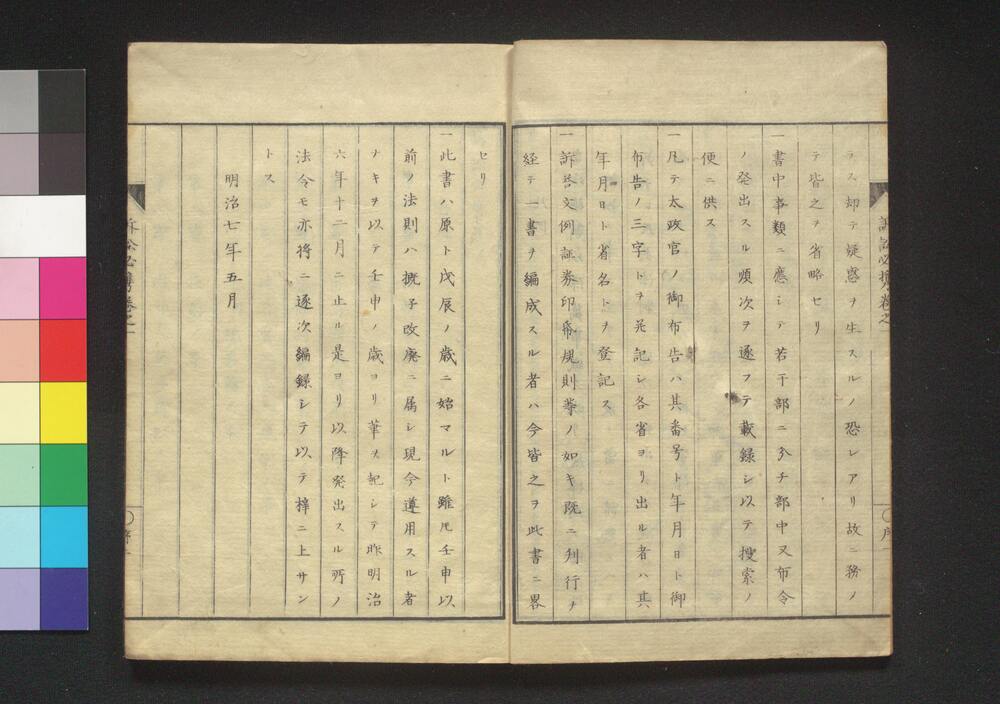 ラス却テ疑惑ヲ生スルノ恐レアリ故ニ務メ
テ皆之ヲ省略セリ
一書中事類ニ應シテ若干部ニ分チ部中又布令
ノ発出スル順次ヲ逐フテ載録シ以テ搜索ノ
便ニ供ス
一凡テ太政官ノ御布告ハ其番号ト年月日ト御
布告ノ三字トヲ并記シ各省ヨリ出ル者ハ其
年月日ト省名トヲ登記ス
一訴答文例証券印紙規則等ノ如キ既ニ刊行ヲ
経テ一書ヲ編成スル者ハ今皆之ヲ此書ニ畧
セリ
一此書ハ原ト戊辰ノ歳ニ始マルト雖𪜈壬申以
前ノ法則ハ概子改廃ニ属シ現今遵用スル者
ナキヲ以テ壬申ノ歳ヨリ筆ヲ起シテ昨明治
六年十二月ニ止ル是ヨリ以降発出スル所ノ
法令モ亦将ニ逐次編録シテ以テ梓ニ上サン
トス
明治七年五月
訴訟必携巻之一
〇序一